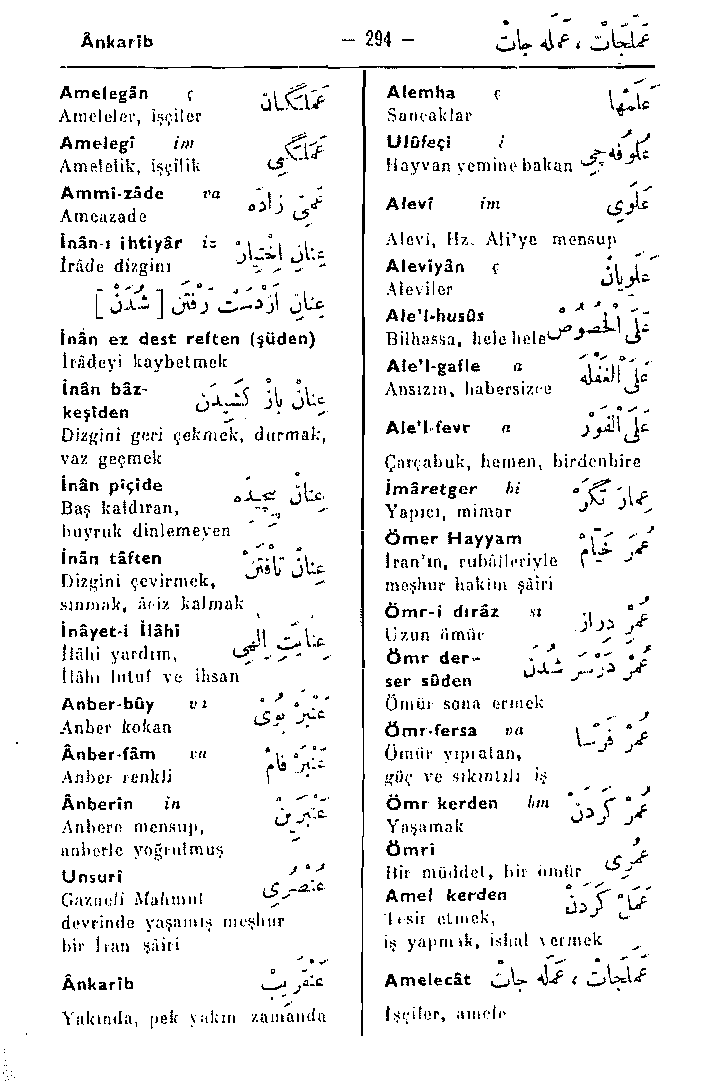 Ânkarîb — 294 — عَمَلِجَاتْ ، عَمَلَه جَاتْ
Amelegân ç عَمَلَگَانْ
Ameleler, işçiler
Amelegî im عَمَلَگِى
Amelelik, işçilik
Ammî-zâde va عَمِّى زَادَه
Amcazade
İnân-ı ihtiyâr iz عِنَانِ اِخْتِيَارْ
İrâde dizgini
عِنَانْ اَزْدَسْتْ رَفْتَنْ [ شُدَنْ ]
İnân ez dest reften (şüden)
İrâdeyi kaybetmek
İnân bâz- عِنَانْ بَازْ كَشِيدَنْ
keşîden
Dizgini geri çekmek, durmak,
vaz geçmek
İnân pîçîde عِنَانْ پِيچِيدَه
Baş kaldıran,
buyruk dinlemeyen
İnân tâften عِنَانْ تَافْتَنْ
Dizgini çevirmek,
sınmak, âciz kalmak
İnâyet-i İlâhî عِنَايَتِ اِلٰهِى
İlâhî yardım,
İlâhî lutuf ve ihsan
Anber-bûy vi عَنْبَرْ بُوىْ
Anber kokan
Ânber-fâm va عَنْبَرْ فَامْ
Anber renkli
Ânberîn in عَنْبَرِينْ
Anbere mensup,
anberle yoğrulmuş
Unsurî عُنْصُرِى
Gazneli Mahmut
devrinde yaşamış meşhur
bir İran şâiri
Ânkarîb عَنْقَرِيبْ
Yakında, pek yakın zamanda
Alemha ç عَلَمْهَا
Sancaklar
Ulûfeçi i عُلُوفَه جِى
Hayvan yemine bakan
Alevî im عَلَوِى
Alevi, Hz. Ali'ye mensup
Aleviyân ç عَلَوِيَانْ
Aleviler
Ale'l-husûs عَلَى الْخُصُوصْ
Bilhassa, hele hele
Ale'l-gafle a عَلَى الْغَفْلَه
Ansızın, habersizce
Ale'l-fevr a عَلَى الْفَوْرْ
Çarçabuk, hemen, birdenbire
İmâretger bi عِمَارَتْگَرْ
Yapıcı, mimar
Ömer Hayyam عُمَرْ خَيَّامْ
İran'ın, rubâîleriyle
meşhur hakim şâiri
Ömr-i dırâz sı عُمْرِ دِرَازْ
Uzun ömür
Ömr der- عُمْرْ دَرْسَرْ شُدَنْ
ser süden
Ömür sona ermek
Ömr-fersa va عُمْرْ فَرْسَا
Ömür yıpratan,
güç ve sıkıntılı iş
Ömr kerden bm عُمْرْ كَرْدَنْ
Yaşamak
Ömrî عُمْرِى
Bir müddet, bir ömür
Amel kerden عَمَلْ كَرْدَنْ
Tesir etmek,
iş yapmak, ishal vermek
Amelecât عَمَلِجَاتْ ، عَمَلَه جَاتْ
İşçiler, amele